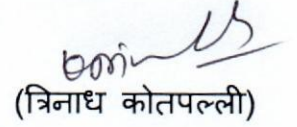 (त्रिनाध कोतपल्ली)